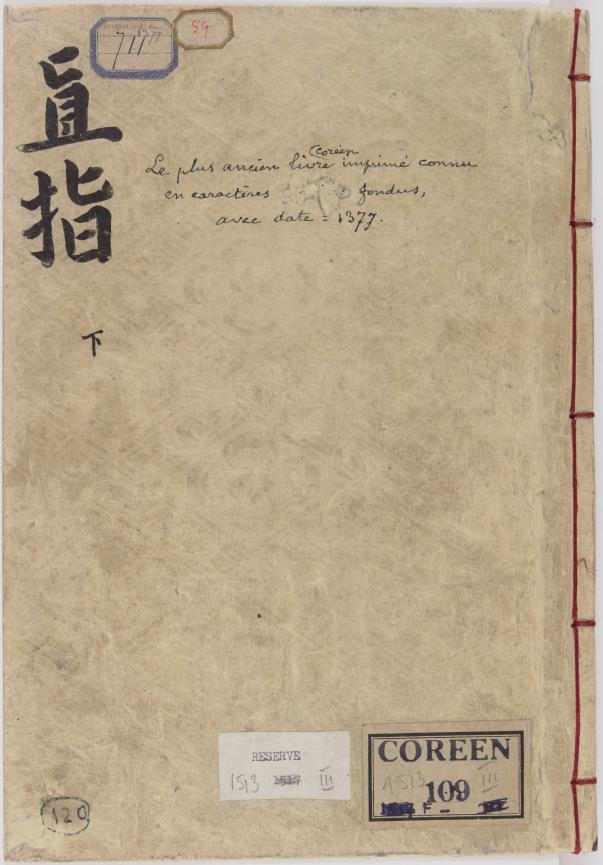 711
59
直指
下
Coréen
Le plus ancien livre imprimé connu
en caractères fondus,
avec date = 1377.
RESERVE
1513 1517 III
COREEN
1513 III
109
F -
120